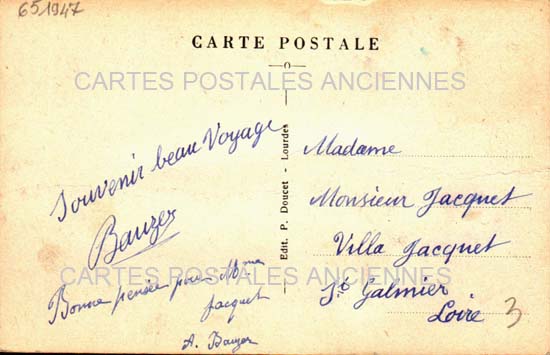 651947
CARTE POSTALE
CARTES POSTALES ANCIENNES
Souvenir beau Voyage
Bauzer
Bonne pensée pour Mme
Jacquet
A. Bauzer
Edit. P. Doucet - Lourdes
Madame
Monsieur Jacquet
Villa Jacquet
St Galmier
Loire
3
CARTES POSTALES ANCIENNES